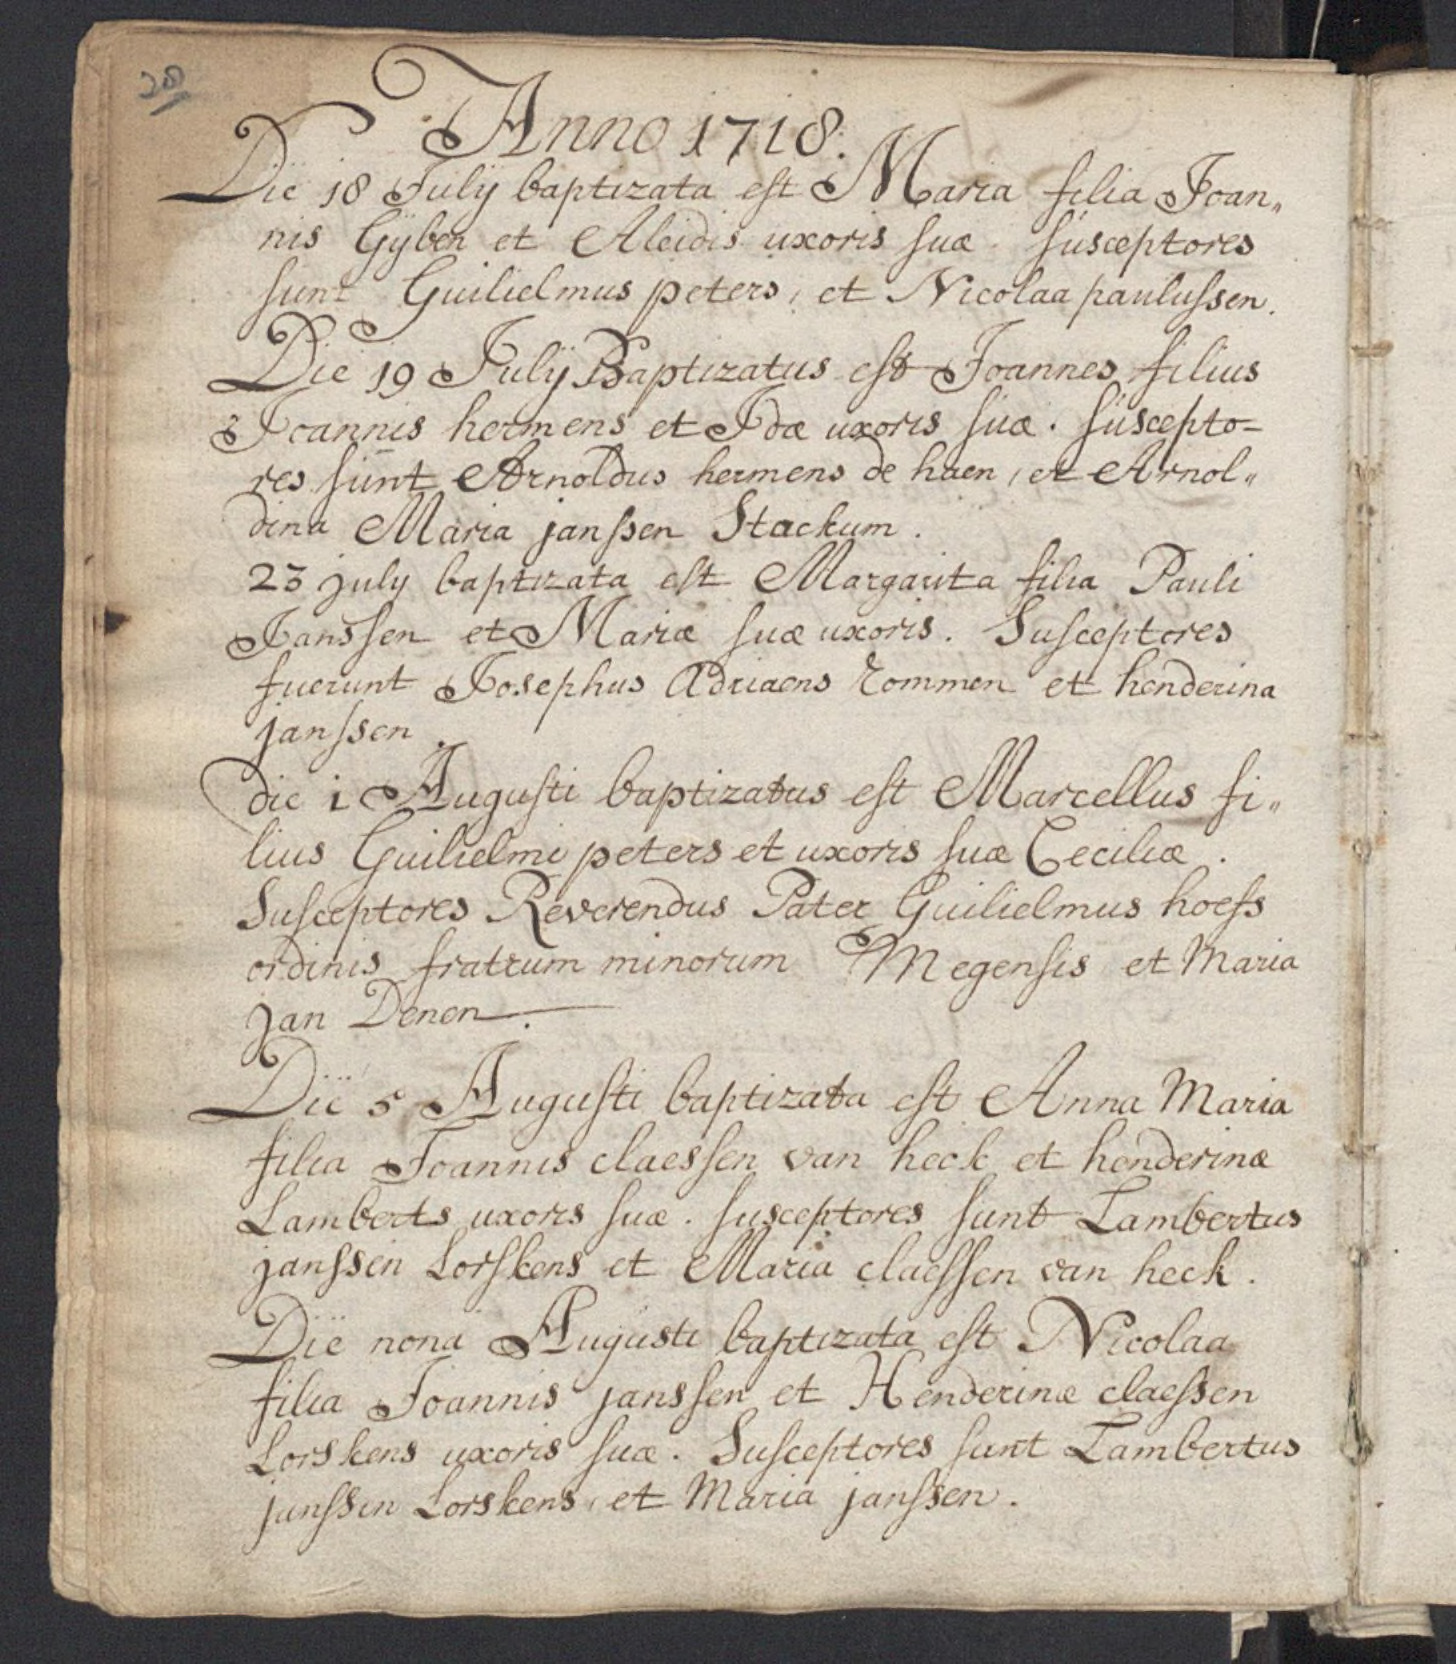 28
Anno 1718.
Die 18 Julij baptizata est Maria filia Joan„
nis Gijben et Aleidis uxoris suæ. susceptores
sunt Guilielmus peters, et Nicolaa paulussen.
Die 19 Julij Baptizatus est Joannes filius
Joannis hermens et Idæ uxoris suæ. suscepto=
res sunt Arnoldus hermens de haen, et Arnol„
dina Maria janssen Stackum.
23 july baptizata est Margarita filia Pauli
Janssen et Mariæ suæ uxoris. Susceptores
fuerunt Josephus Adriaens Rommen et henderina
janssen.
die 1 Augusti baptizatus est Marcellus fi„
lius Guilielmi peters et uxoris suæ Ceciliæ.
Susceptores Reverendus Pater Guilielmus hoefs
ordinis fratrum minorum Megensis et Maria
Jan Denen.
Die 5 Augusti baptizata est Anna Maria
filia Joannis claessen van heck et henderinæ
Lamberts uxoris suæ. susceptores sunt Lambertus
janssen Lorskens et Maria claessen van heck.
Die nona Augusti baptizata est Nicolaa
filia Joannis janssen et Henderinæ claessen
Lorskens uxoris suæ. Susceptores sunt Lambertus
janssen Lorskens, et Maria janssen.